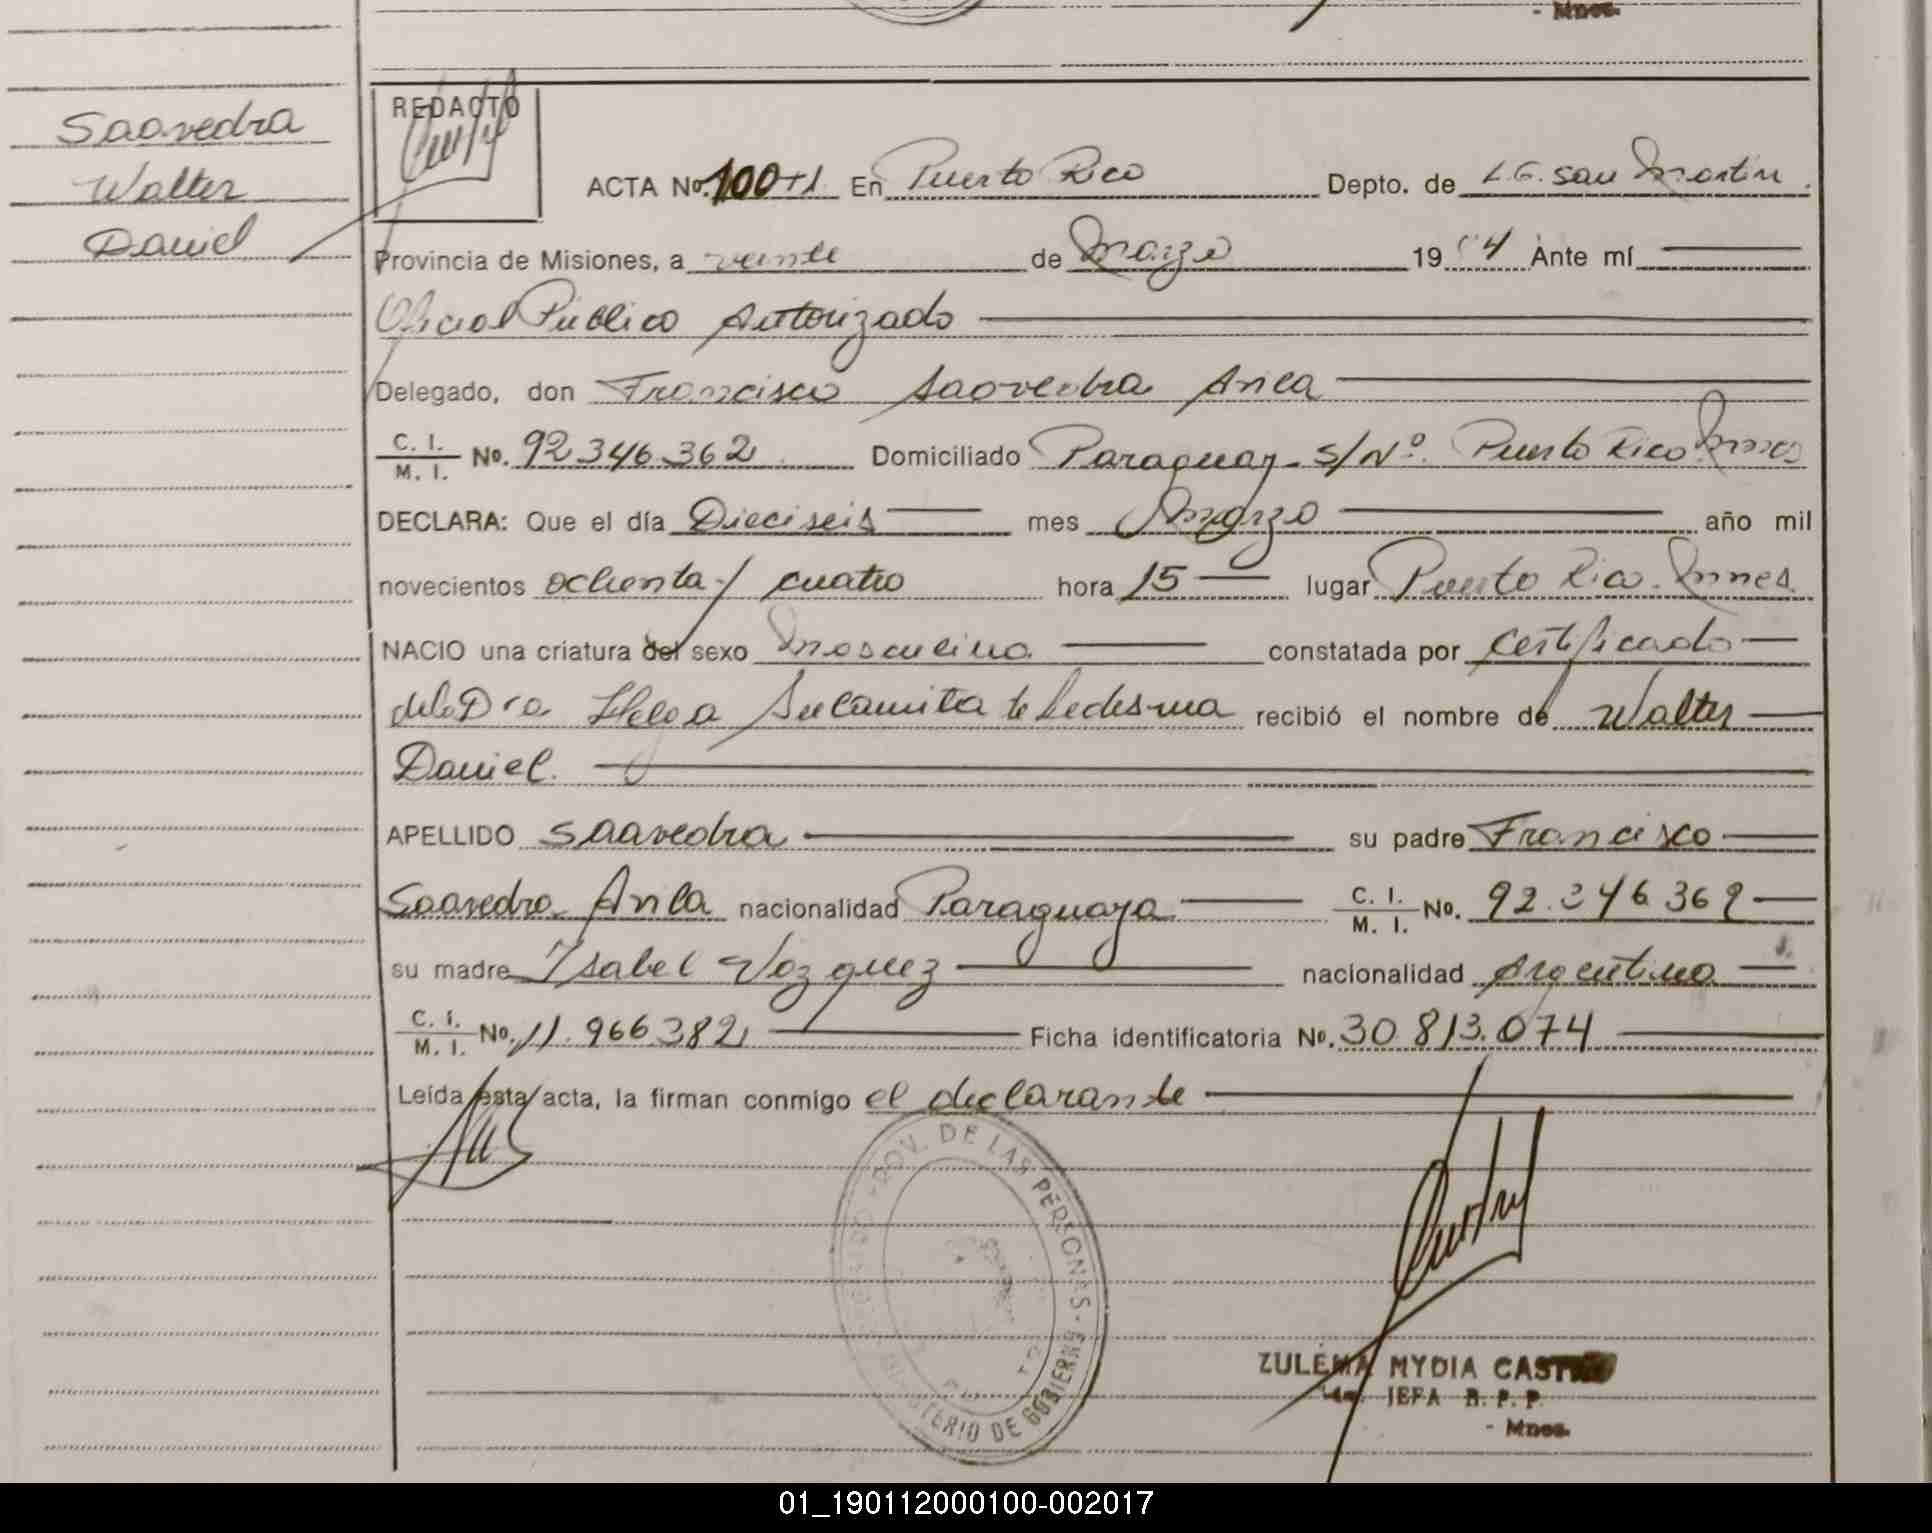 - Mnes.
Saavedra
Walter
Daniel
REDACTO
ACTA No. 100+1 En Puerto Rico Depto. de L.G. San Martin.
Provincia de Misiones, a veinte de Marzo 19 84 Ante mí
Oficial Público Autorizado
Delegado, don Francisco Saavedra Avila
C. I. / M. I. No. 92.346.362 Domiciliado Paraguay S/Nº. Puerto Rico Mnes
DECLARA: Que el día Dieciseis mes Marzo año mil
novecientos ochenta y cuatro hora 15 lugar Puerto Rico. Mnes.
NACIO una criatura del sexo Masculino constatada por Certificado
de la Dra Helga Sulamita de Ledesma recibió el nombre de Walter
Daniel.
APELLIDO Saavedra su padre Francisco
Saavedra Avila nacionalidad Paraguaya C. I. / M. I. No. 92.346.362
su madre Ysabel Vazquez nacionalidad Argentina
C. I. / M. I. No. 11.966.382 Ficha identificatoria No. 30.813.074
Leída esta acta, la firman conmigo el declarante
PROV. DE LAS PERSONAS - MINISTERIO DE GOBIERNO
ZULEMA NYDIA CASTRO
JEFA R. P. P.
- Mnes.
01_190112000100-002017